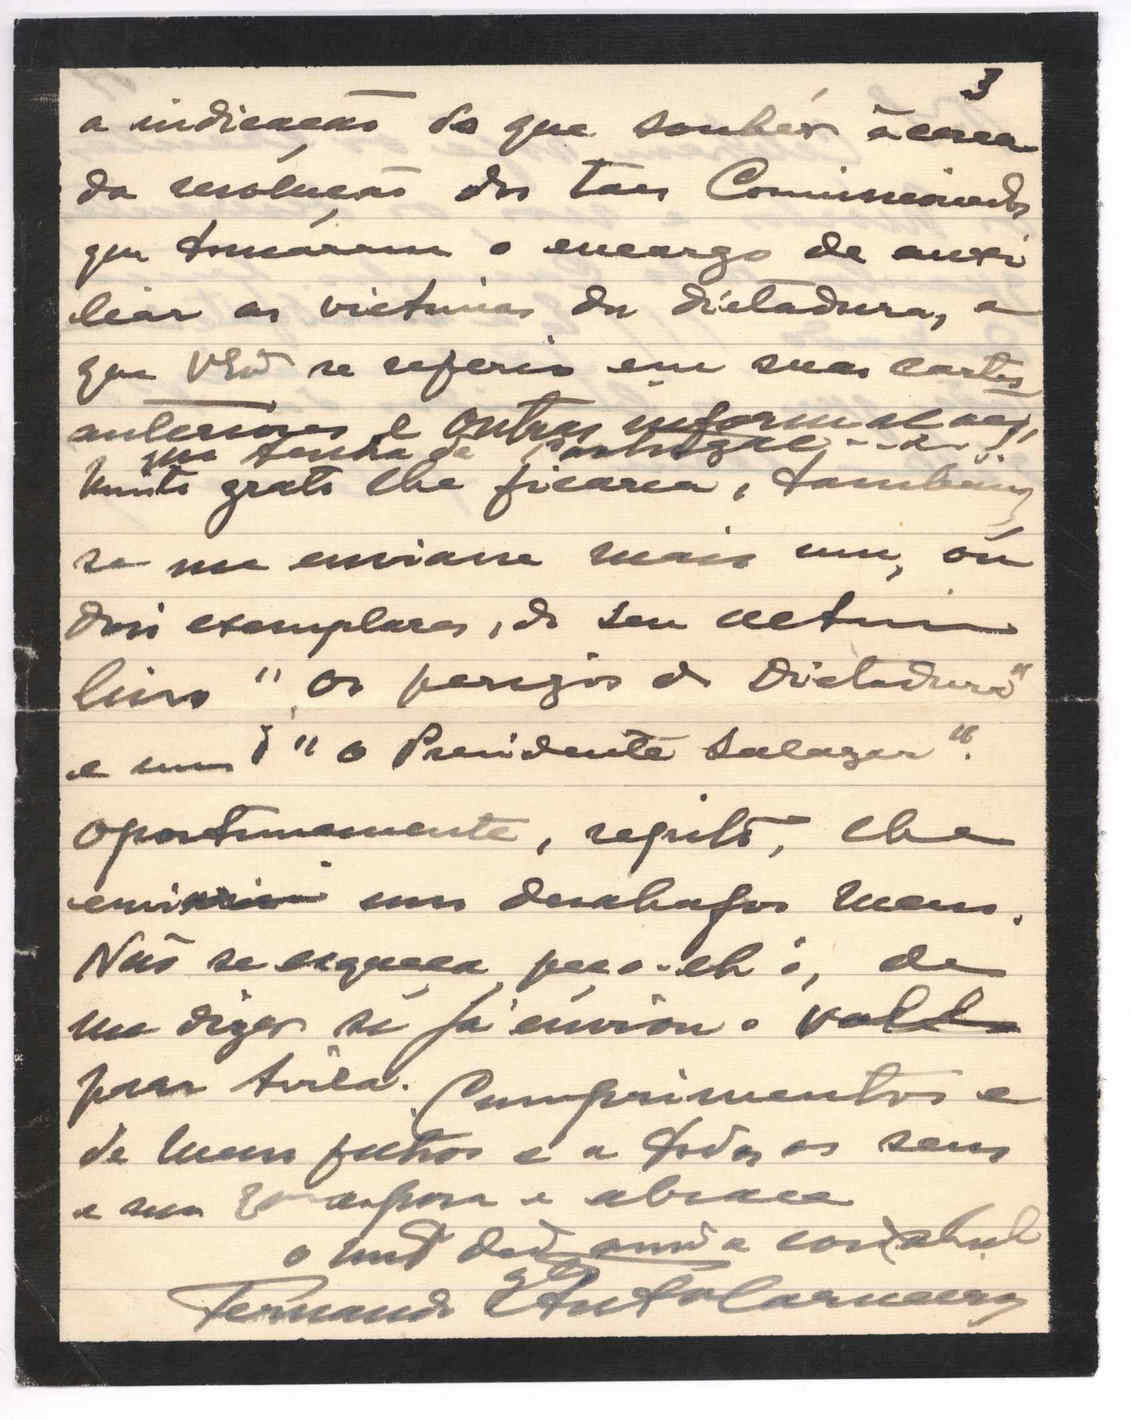 3
a indicação do que soubér ácerca
da resolução dos taes Comissionados
que tomáram o encargo de auxi
liar as victimas da dictadura, a
que VExª se referio em suas cartas
anteriores e outras informações
que tenha de Portugal
Muito grato lhe ficarea, tambem
se me enviasse mais um, ou
dois exemplares, do seu ultimo
livro "Os perigos da Dictadura"
e um d' "O Presidente Salazar".
Opportunamente, repito, lhe
enviarei uns desabafos meus.
Não se esqueça, peço-lh'o, de
me dizer se já enviou o
para Avila. Cumprimentos e
de meus filhos e a todos os seus
e sua Exª esposa e abraça
o mtº dedº amº e
Fernando Carneiro